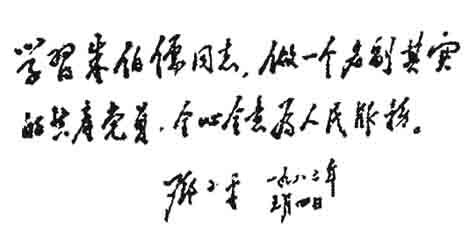 学习朱伯儒同志，做一个名副其实
的共产党员，全心全意为人民服务。
邓小平 一九八三年
三月四日